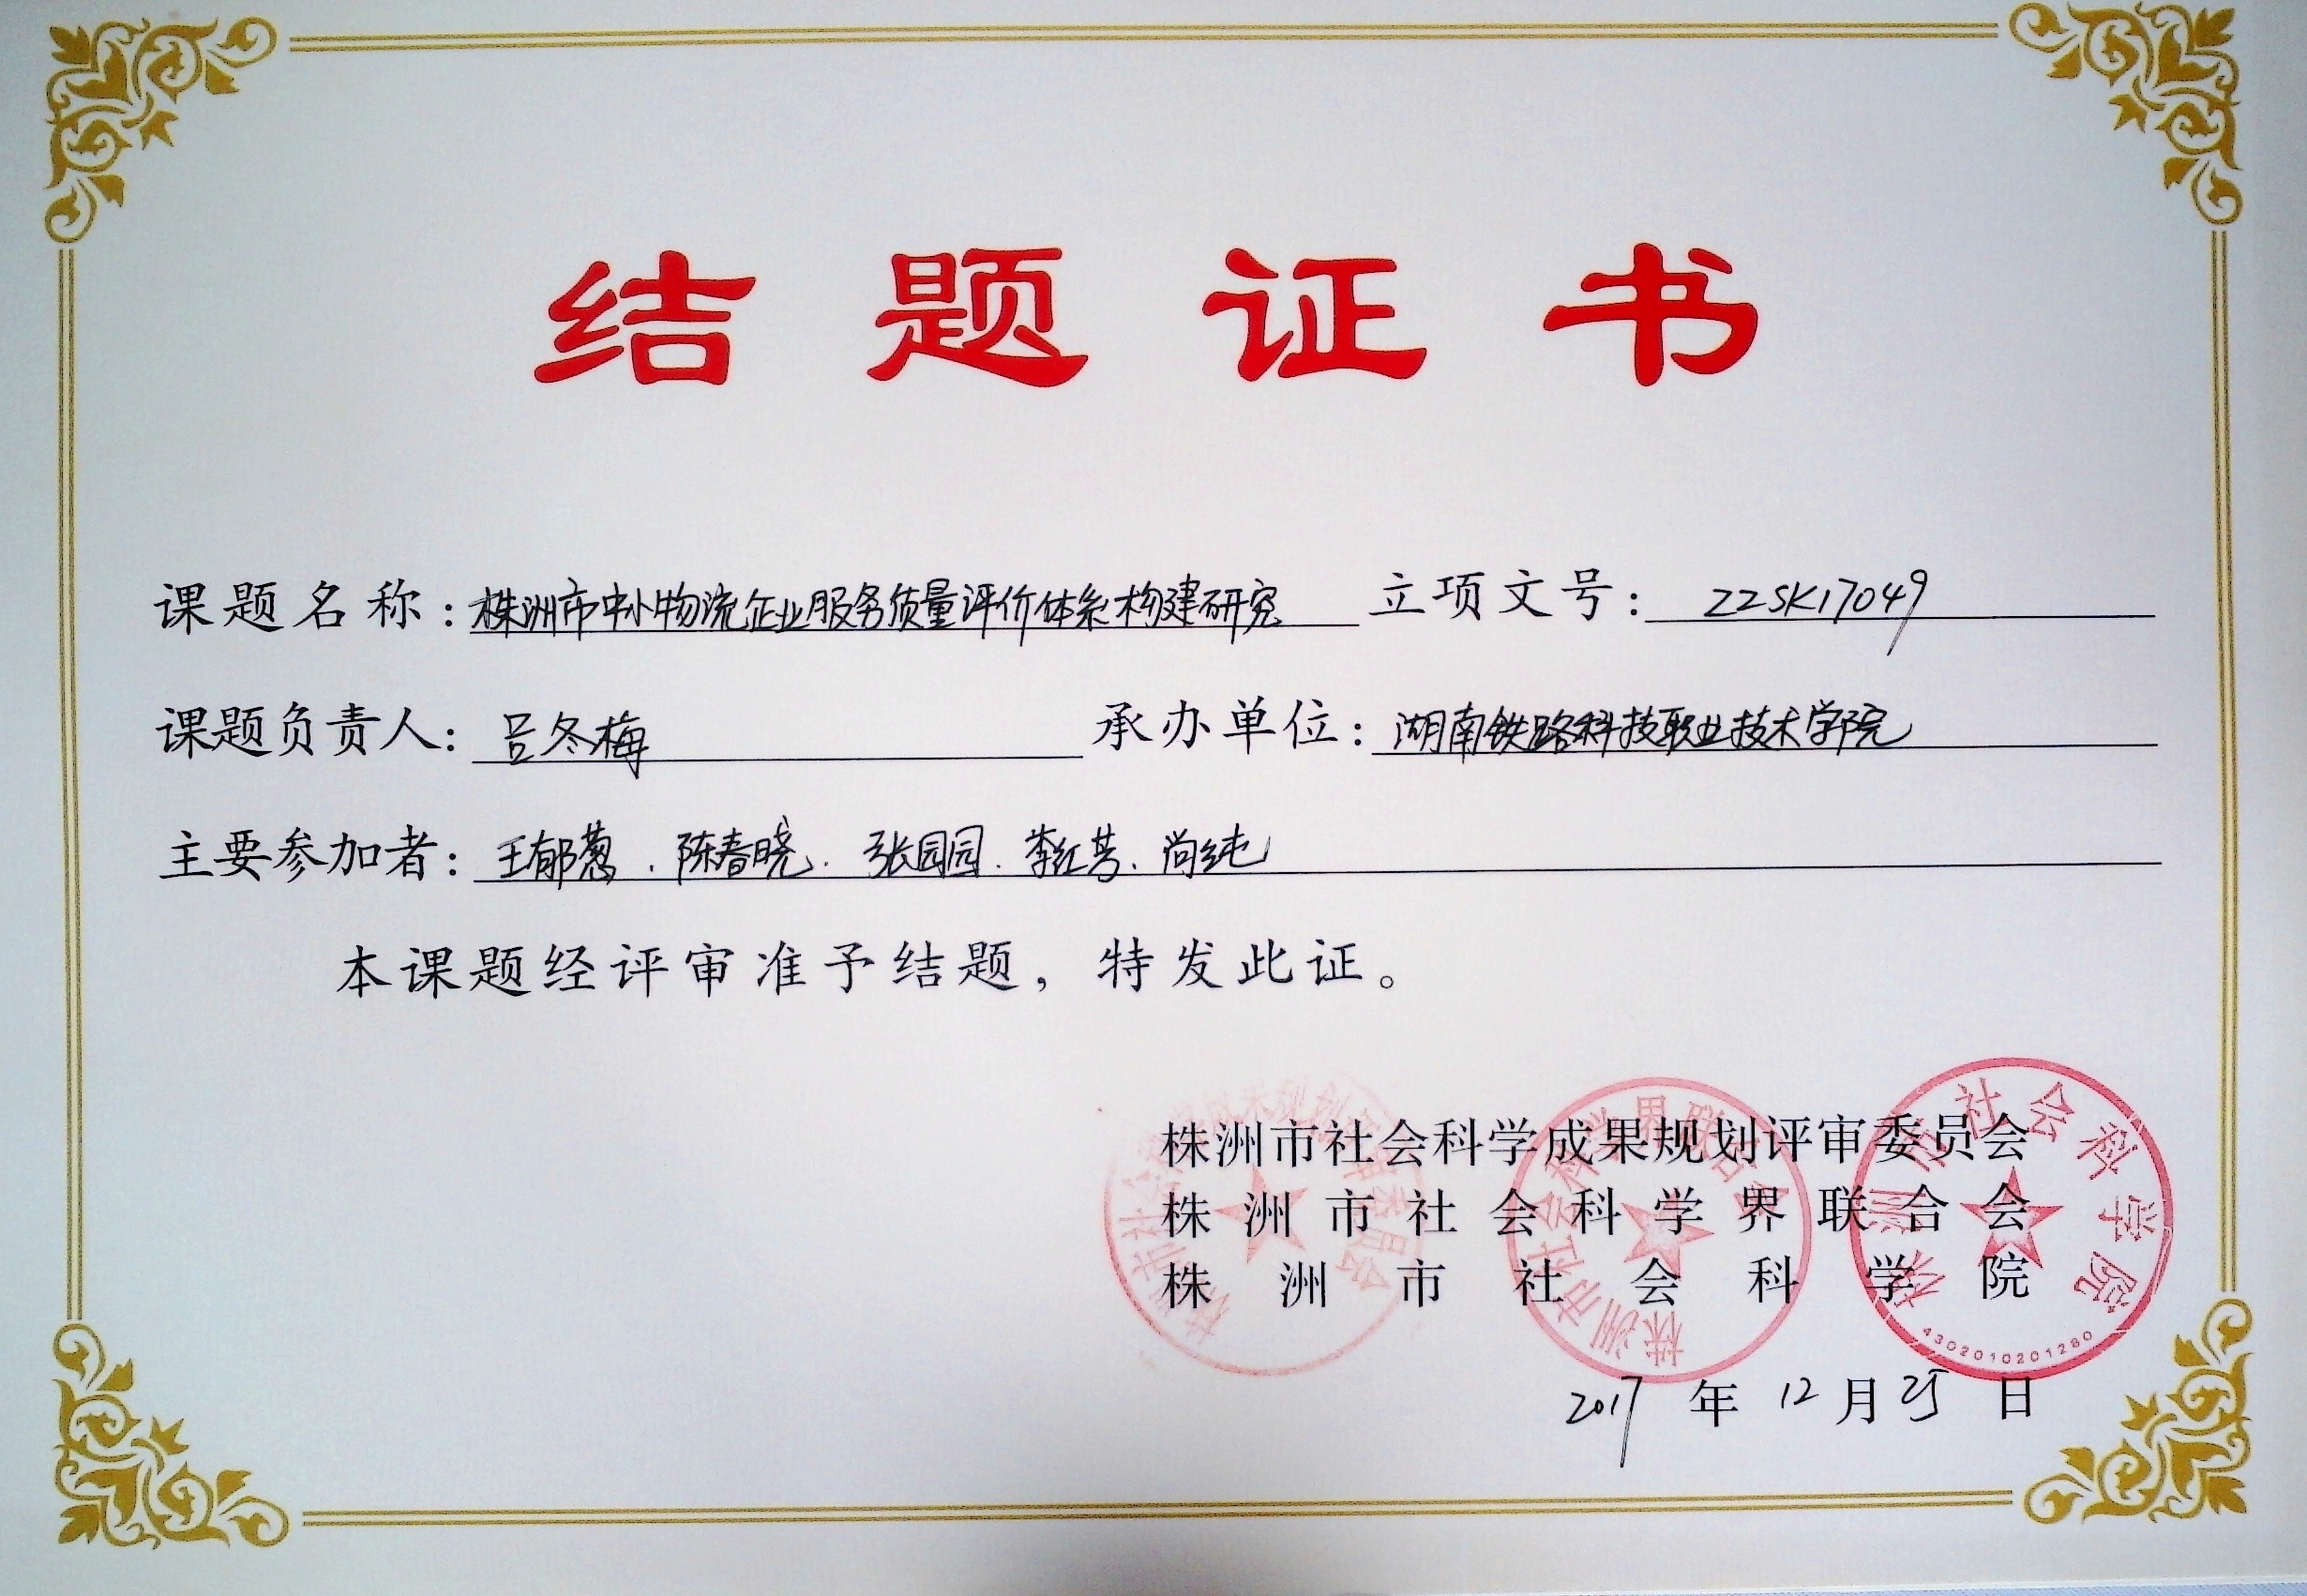 结题证书
课题名称：株洲市中小物流企业服务质量评价体系构建研究 立项文号：ZZSK17049
课题负责人：吕冬梅 承办单位：湖南铁路科技职业技术学院
主要参加者：王郁葱、陈春晓、张园园、李红芳、尚纯
本课题经评审准予结题，特发此证。
株洲市社会科学成果规划评审委员会
株洲市社会科学界联合会
株洲市社会科学院
2017年12月25日
株洲市社会科学成果规划评审委员会
株洲市社会科学界联合会
株洲市社会科学院
4302010201280